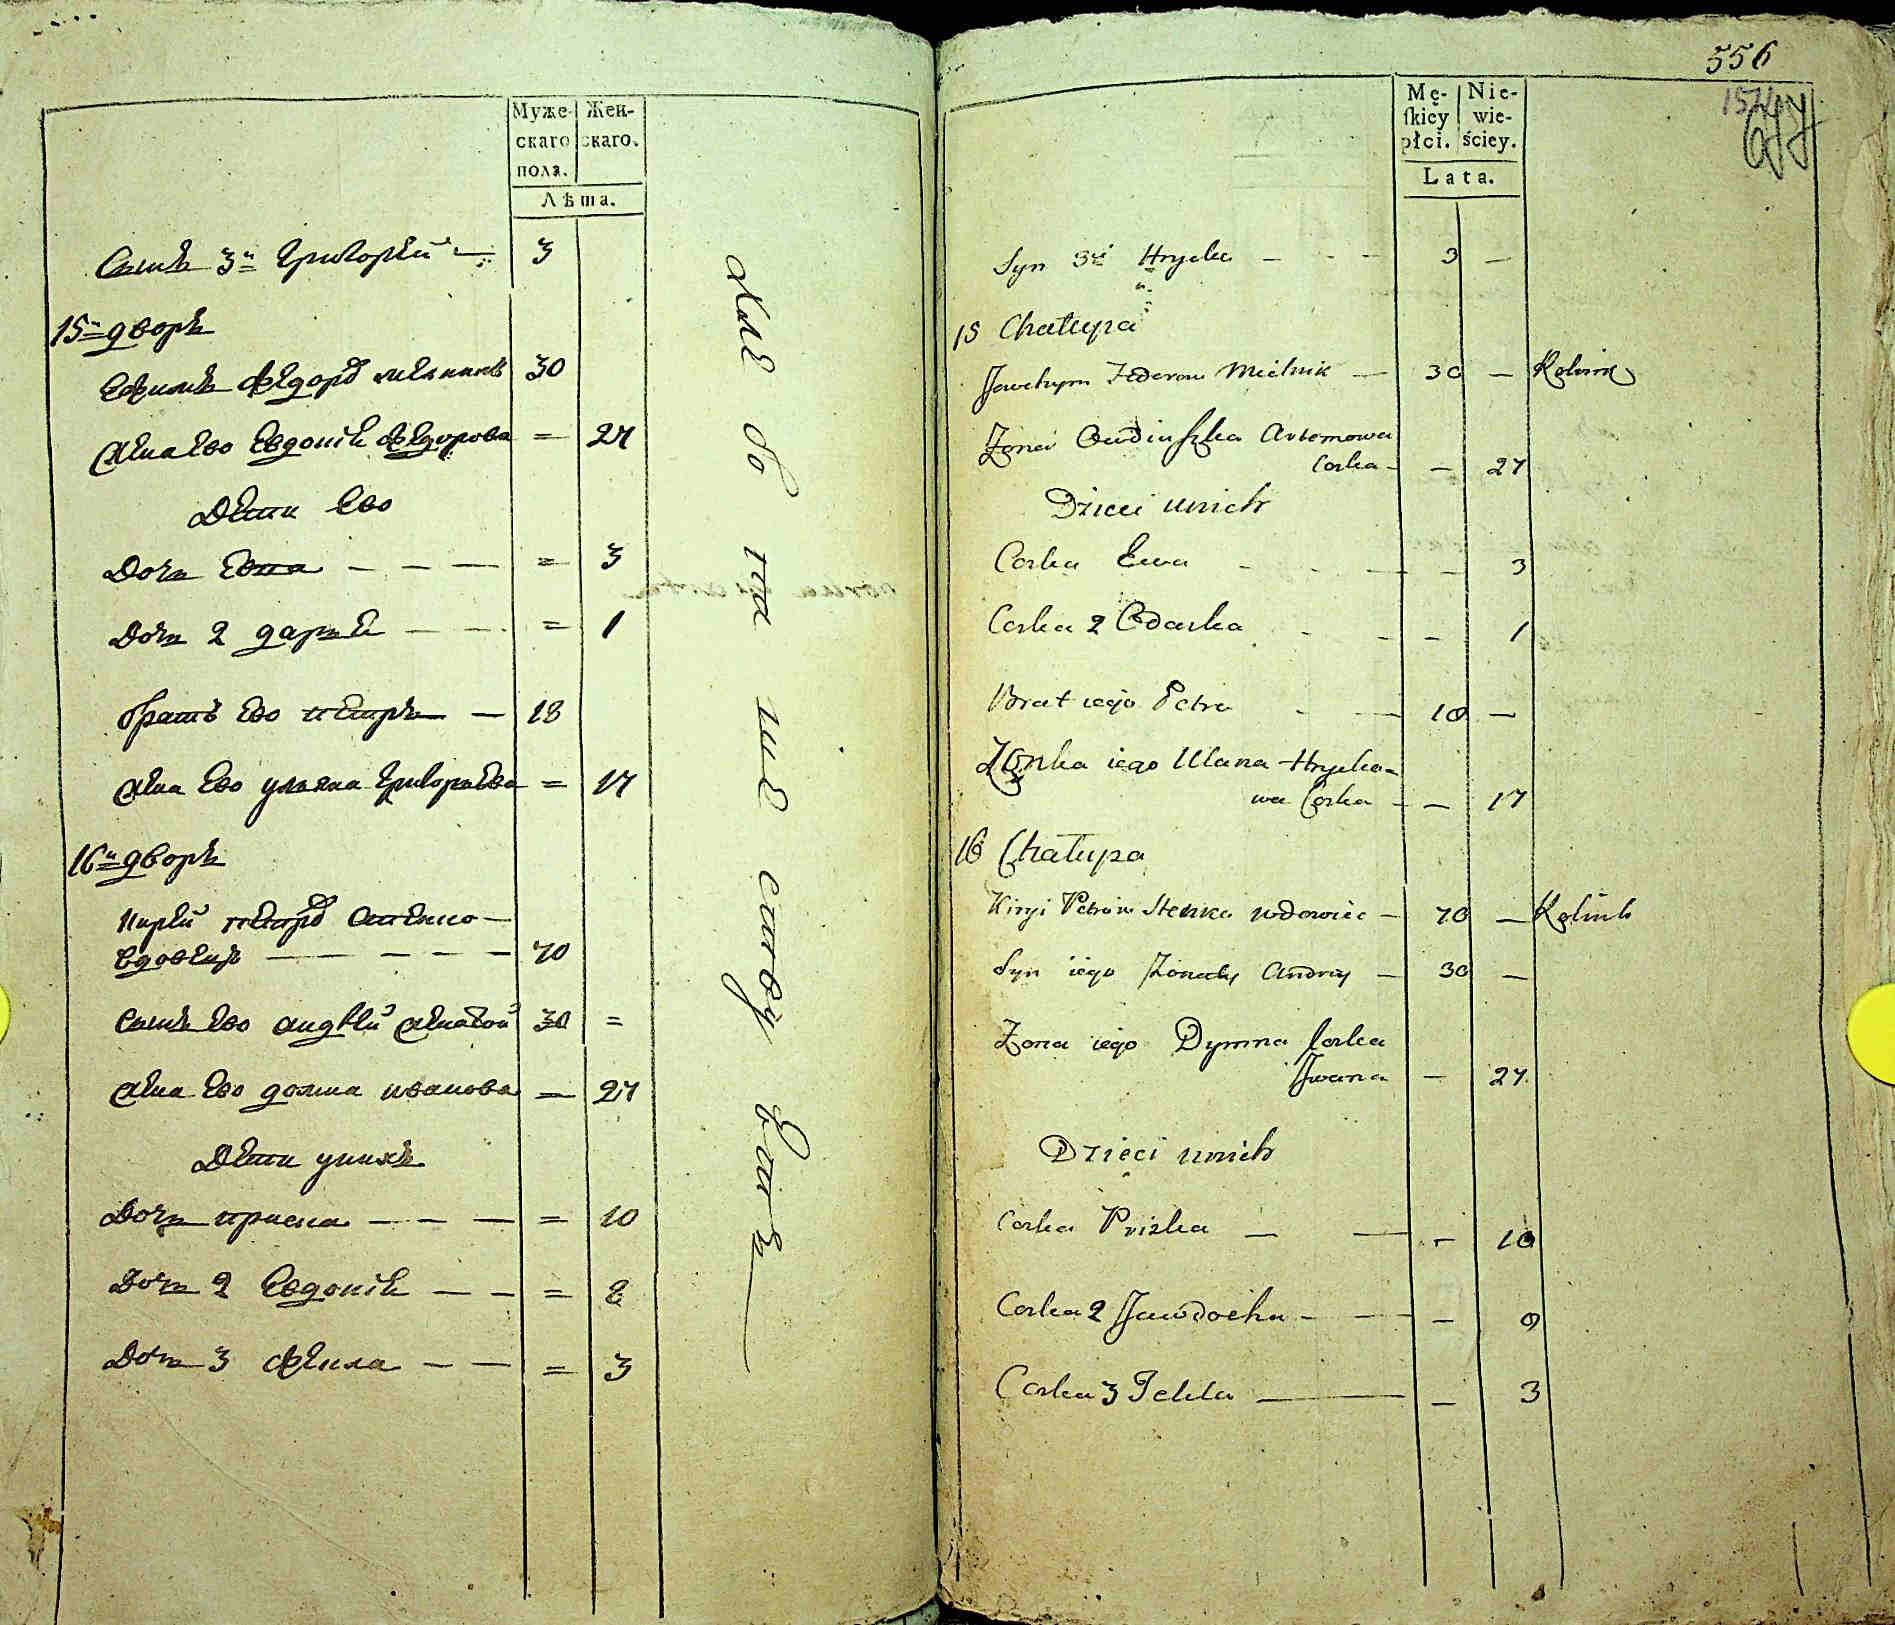 Муже-
скаго
пола.
Жен-
скаго.
Лѣта.
Сынъ 3й Григорей 3
15й дворъ
Ефимъ Федоров мелникъ 30
Жена Ево Евдокіѣ Федорова = 27
Дети Ево
Дочь Евва = 3
Дочь 2 дарьѣ = 1
братъ Ево петръ 18
Жена Ево ульяна Григорьева = 17
16й дворъ
Кирей петров
вдовецъ 70
Сынъ Ево андрей женатой 30 =
Жена Ево домна иванова = 27
Дети унихъ
Дочь приска = 10
Дочь 2 Евдокіѣ = 8
Дочь 3 Фекла = 3
556
Mę-
ſkiey
płci.
Nie-
wie-
ściey.
Lata.
Syn 3ci Hrycko 3
15 Chałupa
Jawchym Fedorow Mielnik 30
Żona Artemowa
Corka 27
Dzieci unich
Corka Ewa 3
Corka 2 Odarka 1
Brat iego Petro 18
Żonka iego Ulana Hrycko-
wa Corka 17
16 Chałupa
Kiryi Petrow Stenko wdowiec 70
Syn iego Żonaty Andrey 30
Żona iego Dymna Corka
Iwana 27
Dzieci unich
Corka Priska 10
Corka 2 Jawdocha 8
Corka 3 Fekla 3